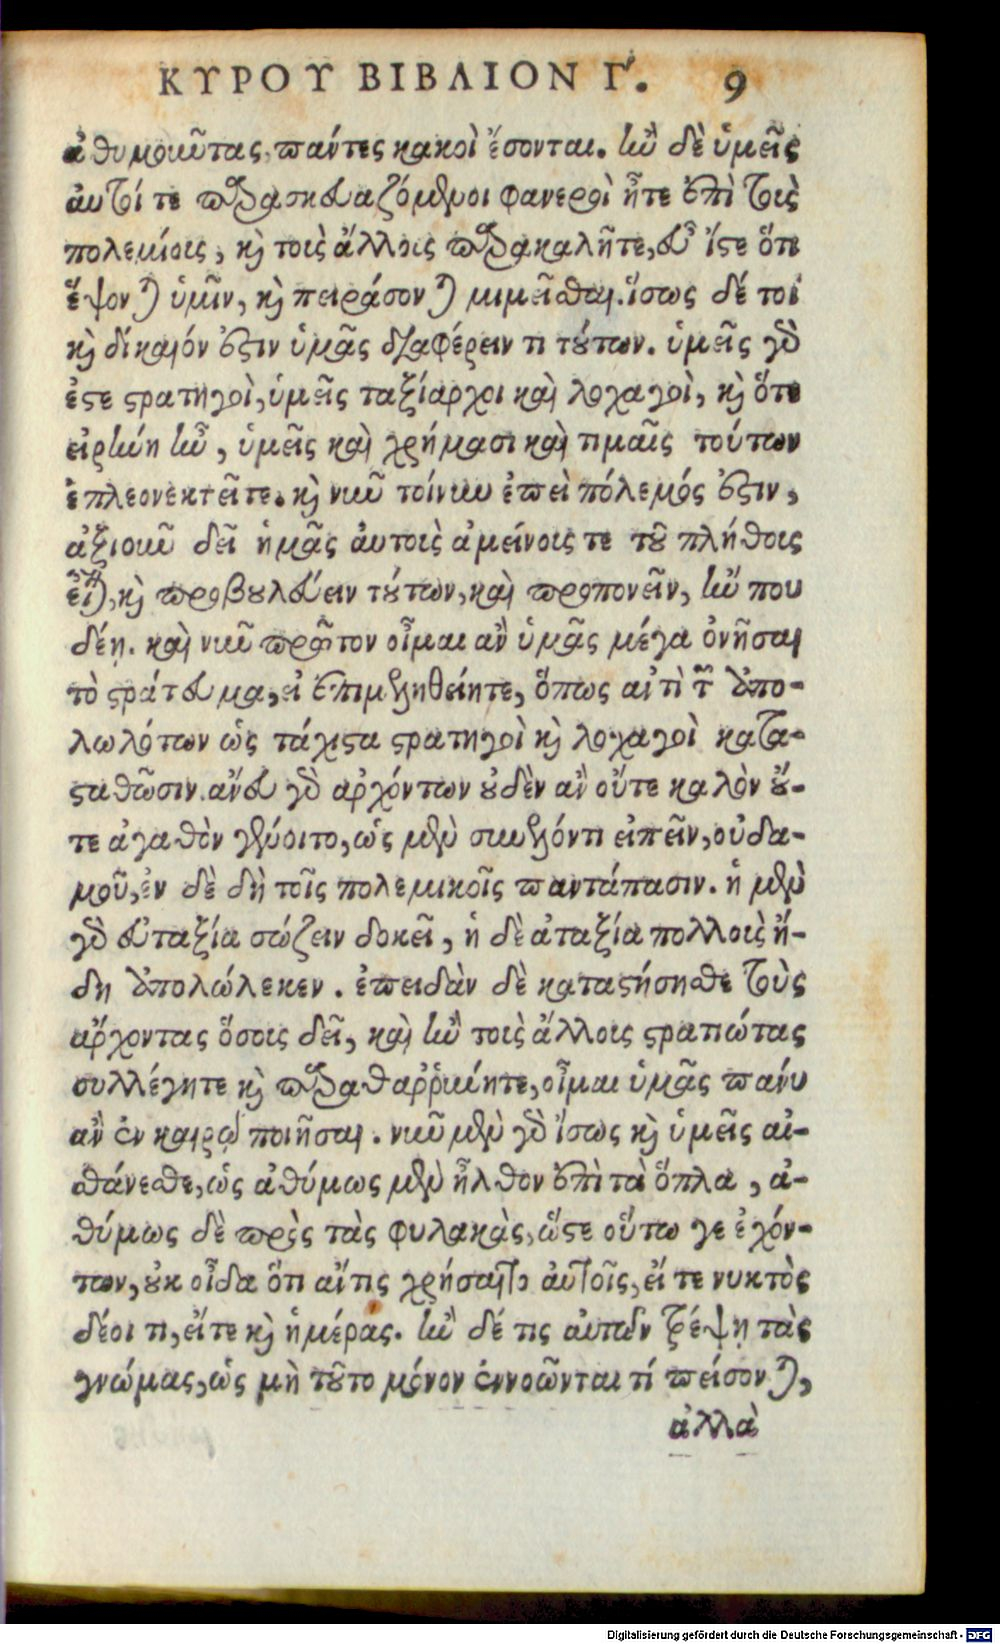 ΚΥΡΟΥ ΒΙΒΛΙΟΝ Γ'. 9
ἀθυμοῦντας, πάντες κακοὶ ἔσονται. ἢν δὲ ὑμεῖς
αὐτοί τε παρασκευαζόμενοι φανεροὶ ἦτε ἐπὶ τοὺς
πολεμίους, καὶ τοὺς ἄλλους παρακαλῆτε, εὖ ἴστε ὅτι
ἕψονται ὑμῖν, καὶ πειράσονται μιμεῖσθαι. ἴσως δέ τοι
καὶ δίκαιόν ἐστιν ὑμᾶς διαφέρειν τι τούτων. ὑμεῖς γὰρ
ἐστε στρατηγοὶ, ὑμεῖς ταξίαρχοι καὶ λοχαγοὶ, καὶ ὅτε
εἰρήνη ἦν, ὑμεῖς καὶ χρήμασι καὶ τιμαῖς τούτων
ἐπλεονεκτεῖτε. καὶ νῦν τοίνυν ἐπεὶ πόλεμός ἐστιν,
ἀξιοῦν δεῖ ἡμᾶς αὐτοὺς ἀμείνους τε τοῦ πλήθους
εἶναι, καὶ προβουλεύειν τούτων, καὶ προπονεῖν, ἤν που
δέῃ. καὶ νῦν πρῶτον οἶμαι ἂν ὑμᾶς μέγα ὀνῆσαι
τὸ στράτευμα, εἰ ἐπιμεληθείητε, ὅπως ἀντὶ τῶν ἀπο-
λωλότων ὡς τάχιστα στρατηγοὶ καὶ λοχαγοὶ κατα-
σταθῶσιν. ἄνευ γὰρ ἀρχόντων οὐδὲν ἂν οὔτε καλὸν οὔ-
τε ἀγαθὸν γένοιτο, ὡς μὲν συνελόντι εἰπεῖν, οὐδα-
μοῦ, ἐν δὲ δὴ τοῖς πολεμικοῖς παντάπασιν. ἡ μὲν
γὰρ εὐταξία σώζειν δοκεῖ, ἡ δὲ ἀταξία πολλοὺς ἤ-
δη ἀπολώλεκεν. ἐπειδὰν δὲ καταστήσησθε τοὺς
ἄρχοντας ὅσους δεῖ, καὶ ἢν τοὺς ἄλλους στρατιώτας
συλλέγητε καὶ παραθαῤῥύνητε, οἶμαι ὑμᾶς πάνυ
ἂν ἐν καιρῷ ποιῆσαι. νῦν μὲν γὰρ ἴσως καὶ ὑμεῖς αἰ-
σθάνεσθε, ὡς ἀθύμως μὲν ἦλθον ἐπὶ τὰ ὅπλα, ἀ-
θύμως δὲ πρὸς τὰς φυλακὰς, ὥστε οὕτω γε ἐχόν-
των, οὐκ οἶδα ὅτι ἄν τις χρήσαιτο αὐτοῖς, εἴτε νυκτὸς
δέοι τι, εἴτε καὶ ἡμέρας. ἢν δέ τις αὐτῶν τρέψῃ τὰς
γνώμας, ὡς μὴ τοῦτο μόνον ἐννοῶνται τί πείσονται,
ἀλλὰ
Digitalisierung gefördert durch die Deutsche Forschungsgemeinschaft - DFG